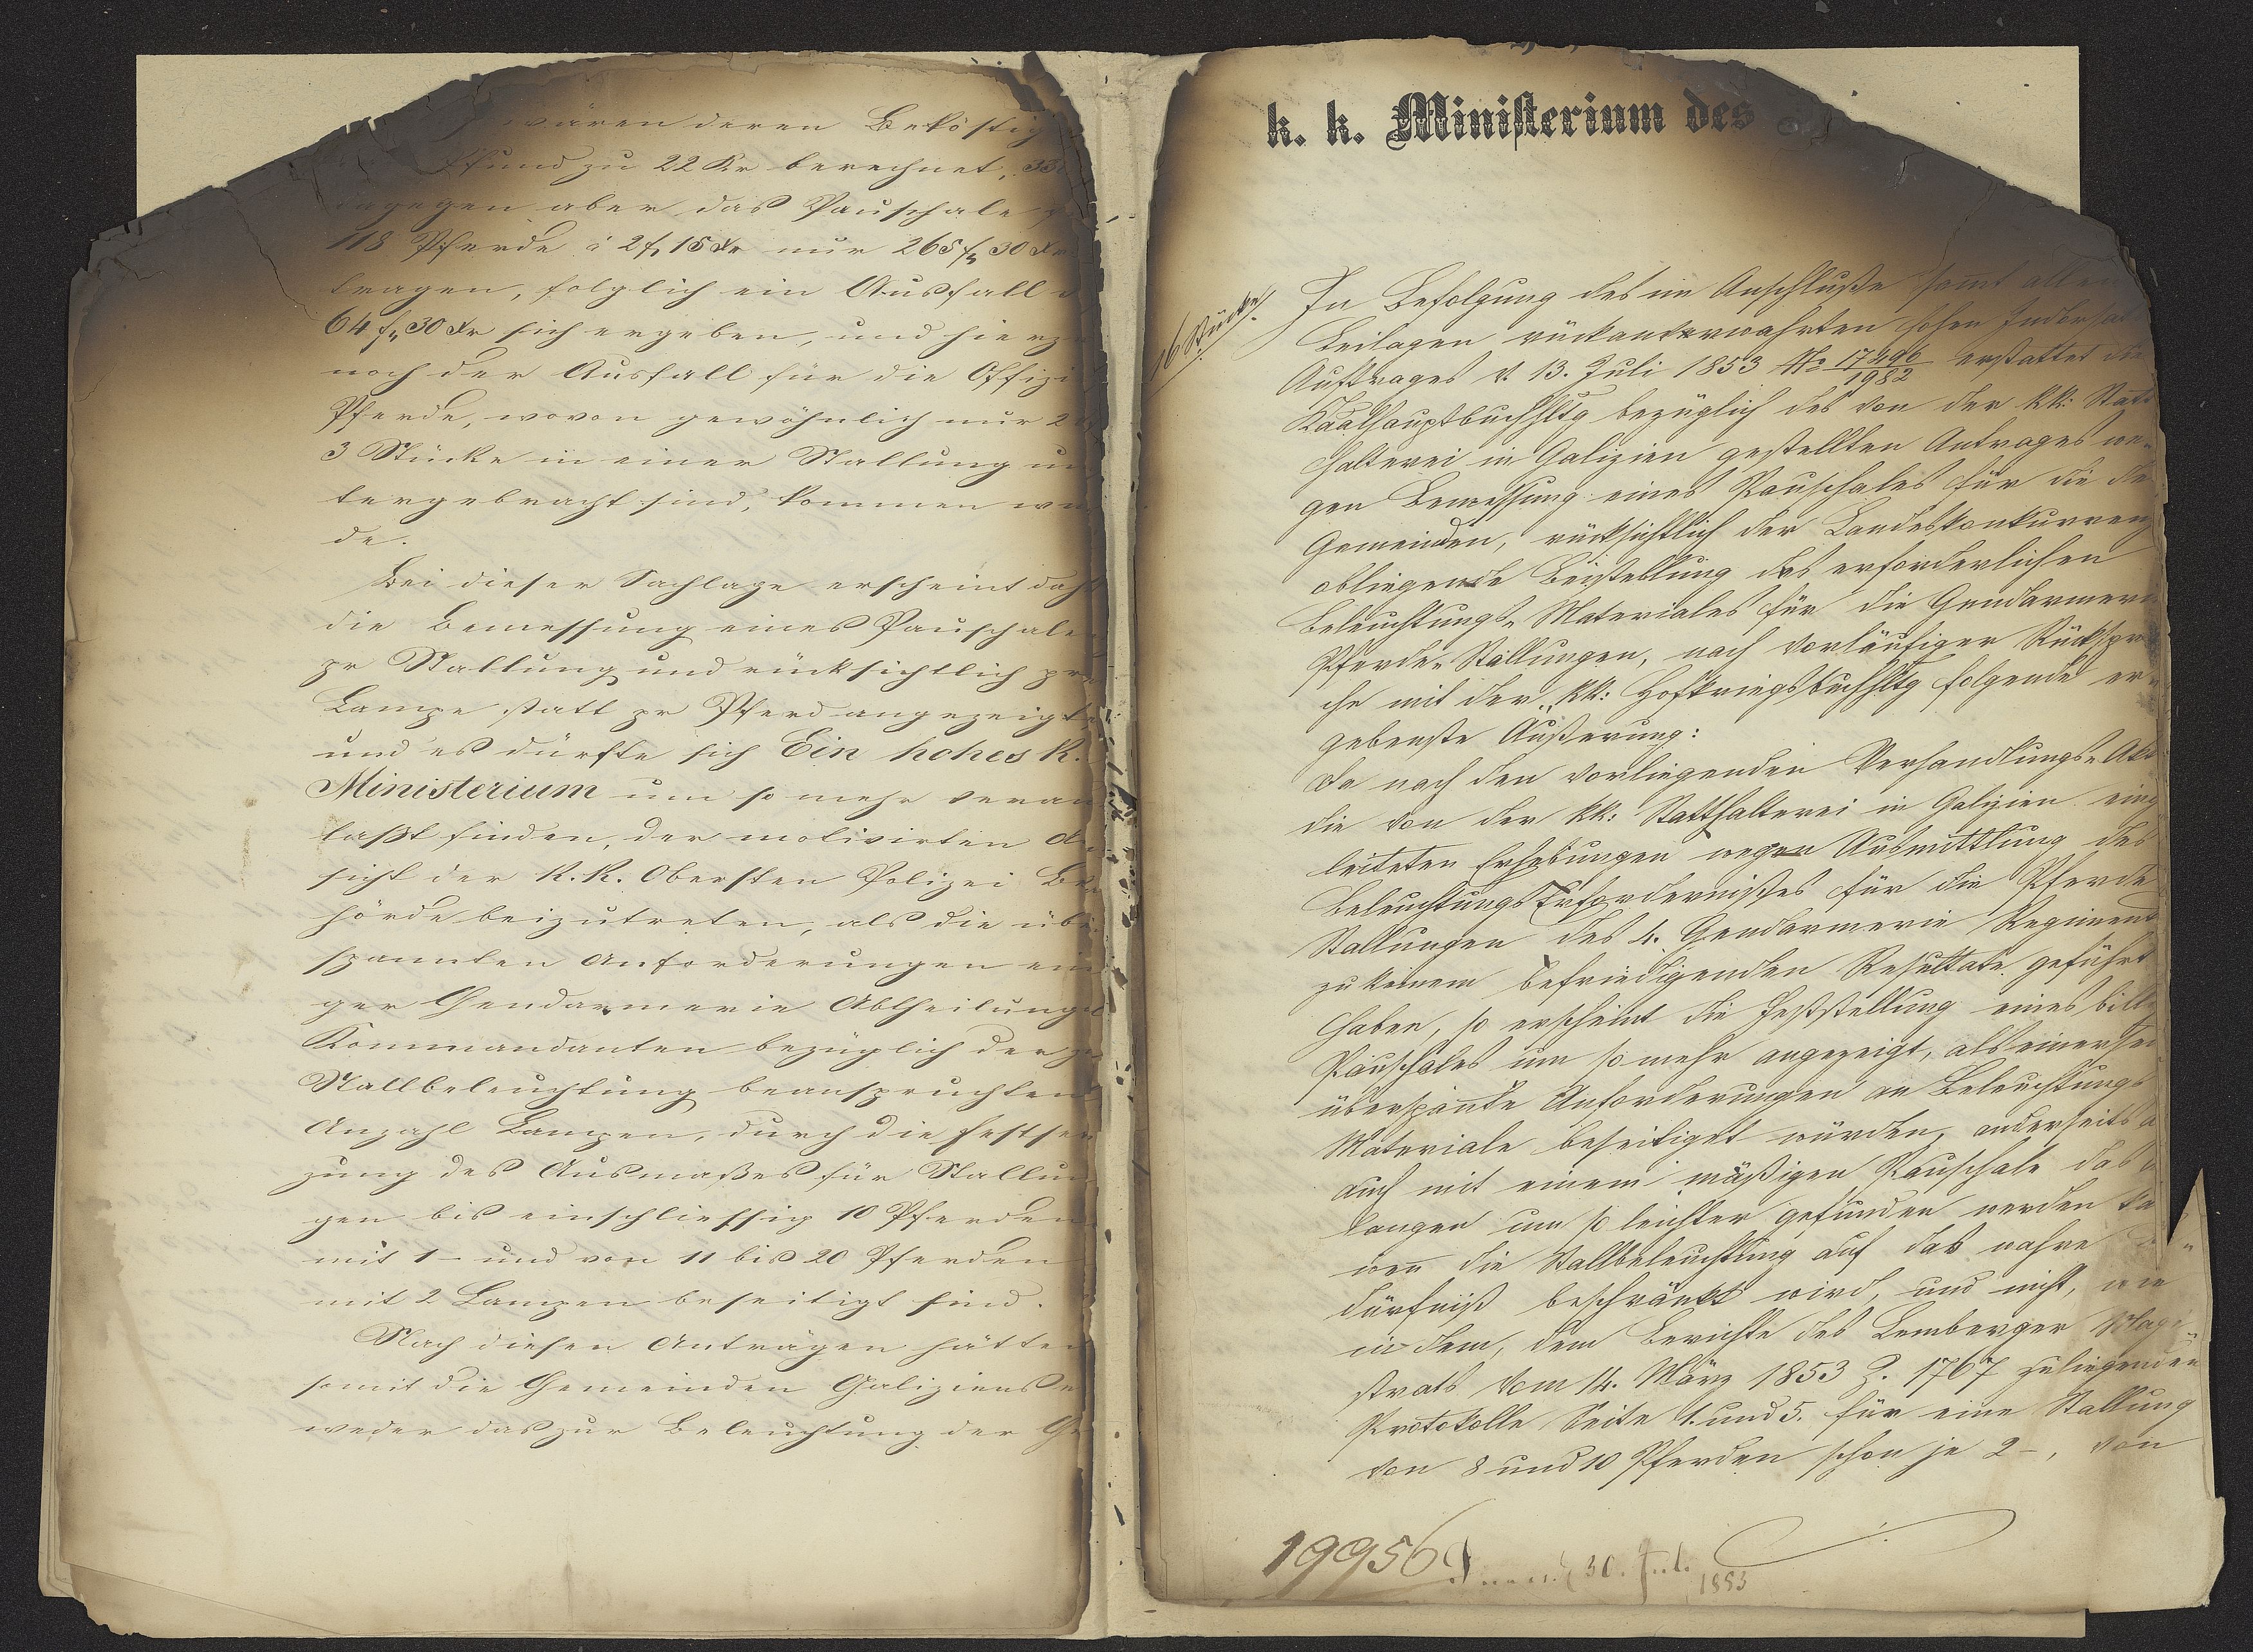 wären deren Beköstig
Pfund zu 22 Kr berechnet, 33
ngegen aber das Pauschale
118 Pferde à 2 f 15 Xr nur 265 f 30 Xr
tragen, folglich ein Ausfall
64 f 30 Xr sich ergeben, und hierz
noch der Ausfall für die Offizi
Pferde, wovon gewöhnlich nur 2
3 Stücke in einer Stallung un
tergebracht sind, kommen wü
de.
Bei dieser Sachlage erscheint dah
die Bemessung eines Pauschale
pr Stallung und rücksichtlich pr
Lampe statt pr Pferd angezeigt
und es dürfte sich Ein hohes K.
Ministerium um so mehr veran
laßt finden, der motivirten An
sicht der K. K. Obersten Polizei Be
hörde beizutreten, als die übe
spannten Anforderungen eini
ger Gendarmerie Abtheilungs
Kommandanten bezüglich der zu
Stallbeleuchtung beanspruchten
Anzahl Lampen, durch die Festse
zung des Ausmaßes für Stallun
gen bis einschliessig 10 Pferden
mit 1 – und von 11 bis 20 Pferden
mit 2 Lampen beseitigt sind.
Nach diesen Anträgen hätten
somit die Gemeinden Galiziens e
weder das zur Beleuchtung der Ge
k. k. Ministerium des
16 Stücke
In Befolgung des im Anschluße sammt allen
Beilagen rückverwahrten hohen Indorsat
Auftrages v. 13. Juli 1853 No 17496/1982 erstattet die
Kaalhauptbuchhltg bezüglich des von der kk: Statt
halterei in Galizien gestellten Antrages we-
gen Bemessung eines Pauschales für die de
Gemeinden, rücksichtlich der Landeskonkurrenz
obliegende Beistellung des erforderlichen
Beleuchtungs-Materiales für die Gendarmerie
Pferde-Stallungen, nach vorläufiger Rückspra
che mit der kk: Hofkriegsbuchhltg folgende er-
gebenste Äußerung:
Da nach den vorliegenden Verhandlungs-Akt
die von der kk: Statthalterei in Galizien eing
leiteten Erhebungen wegen Ausmittlung des
Beleuchtungs Erfordernißes für die Pferde
Stallungen des 4. Gendarmerie Regiment
zu keinem befriedigenden Resultate geführt
haben, so erscheint die Feststellung eines bill
Pauschales um so mehr angezeigt, als einersei
überspannte Anforderungen an Beleuchtungs
Materiale beseitiget würden, anderseits a
auch mit einem mäßigen Pauschale das
langen um so leichter gefunden werden ka
wenn die Stallbeleuchtung auf das wahre Be-
dürfniß beschränkt wird, und nicht, wie
in dem, dem Berichte des Lemberger Magi-
strats vom 14. März 1853 Z. 1767 zuliegenden
Protokolle Seite 1. und 5. für eine Stallung
von 8 und 10 Pferden schon je 2 –, von
19956
30. Juli
1853